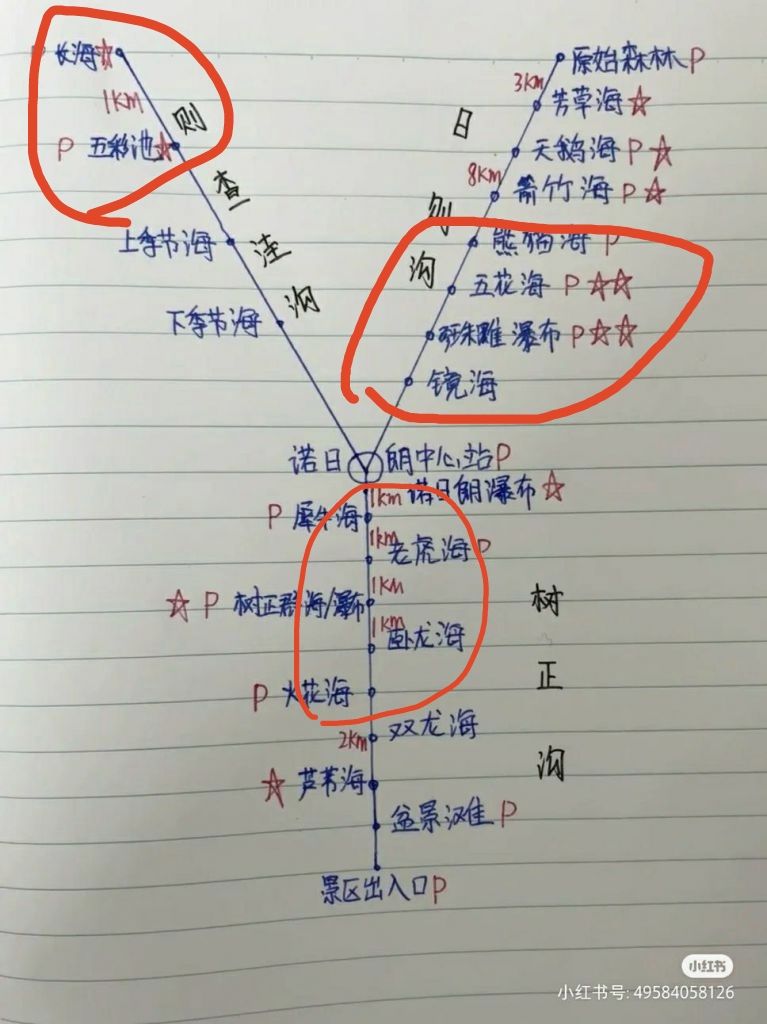 P 长海☆
1KM
P 五彩池☆
上季节海
下季节海
则
查
洼
沟
原始森林P
3KM
芳草海☆
天鹅海P☆
8KM
箭竹海P☆
熊猫海P
五花海P☆☆
珠雕瀑布P☆☆
镜海
日
沟
诺日朗中心站P
1KM 诺日朗瀑布☆
P 犀牛海
1KM
老虎海P
1KM
☆ P 树正群海/瀑布
1KM
卧龙海
P 火花海
双龙海
2KM
☆ 芦苇海
盆景滩P
景区出入口P
树
正
沟
小红书
小红书号: 49584058126